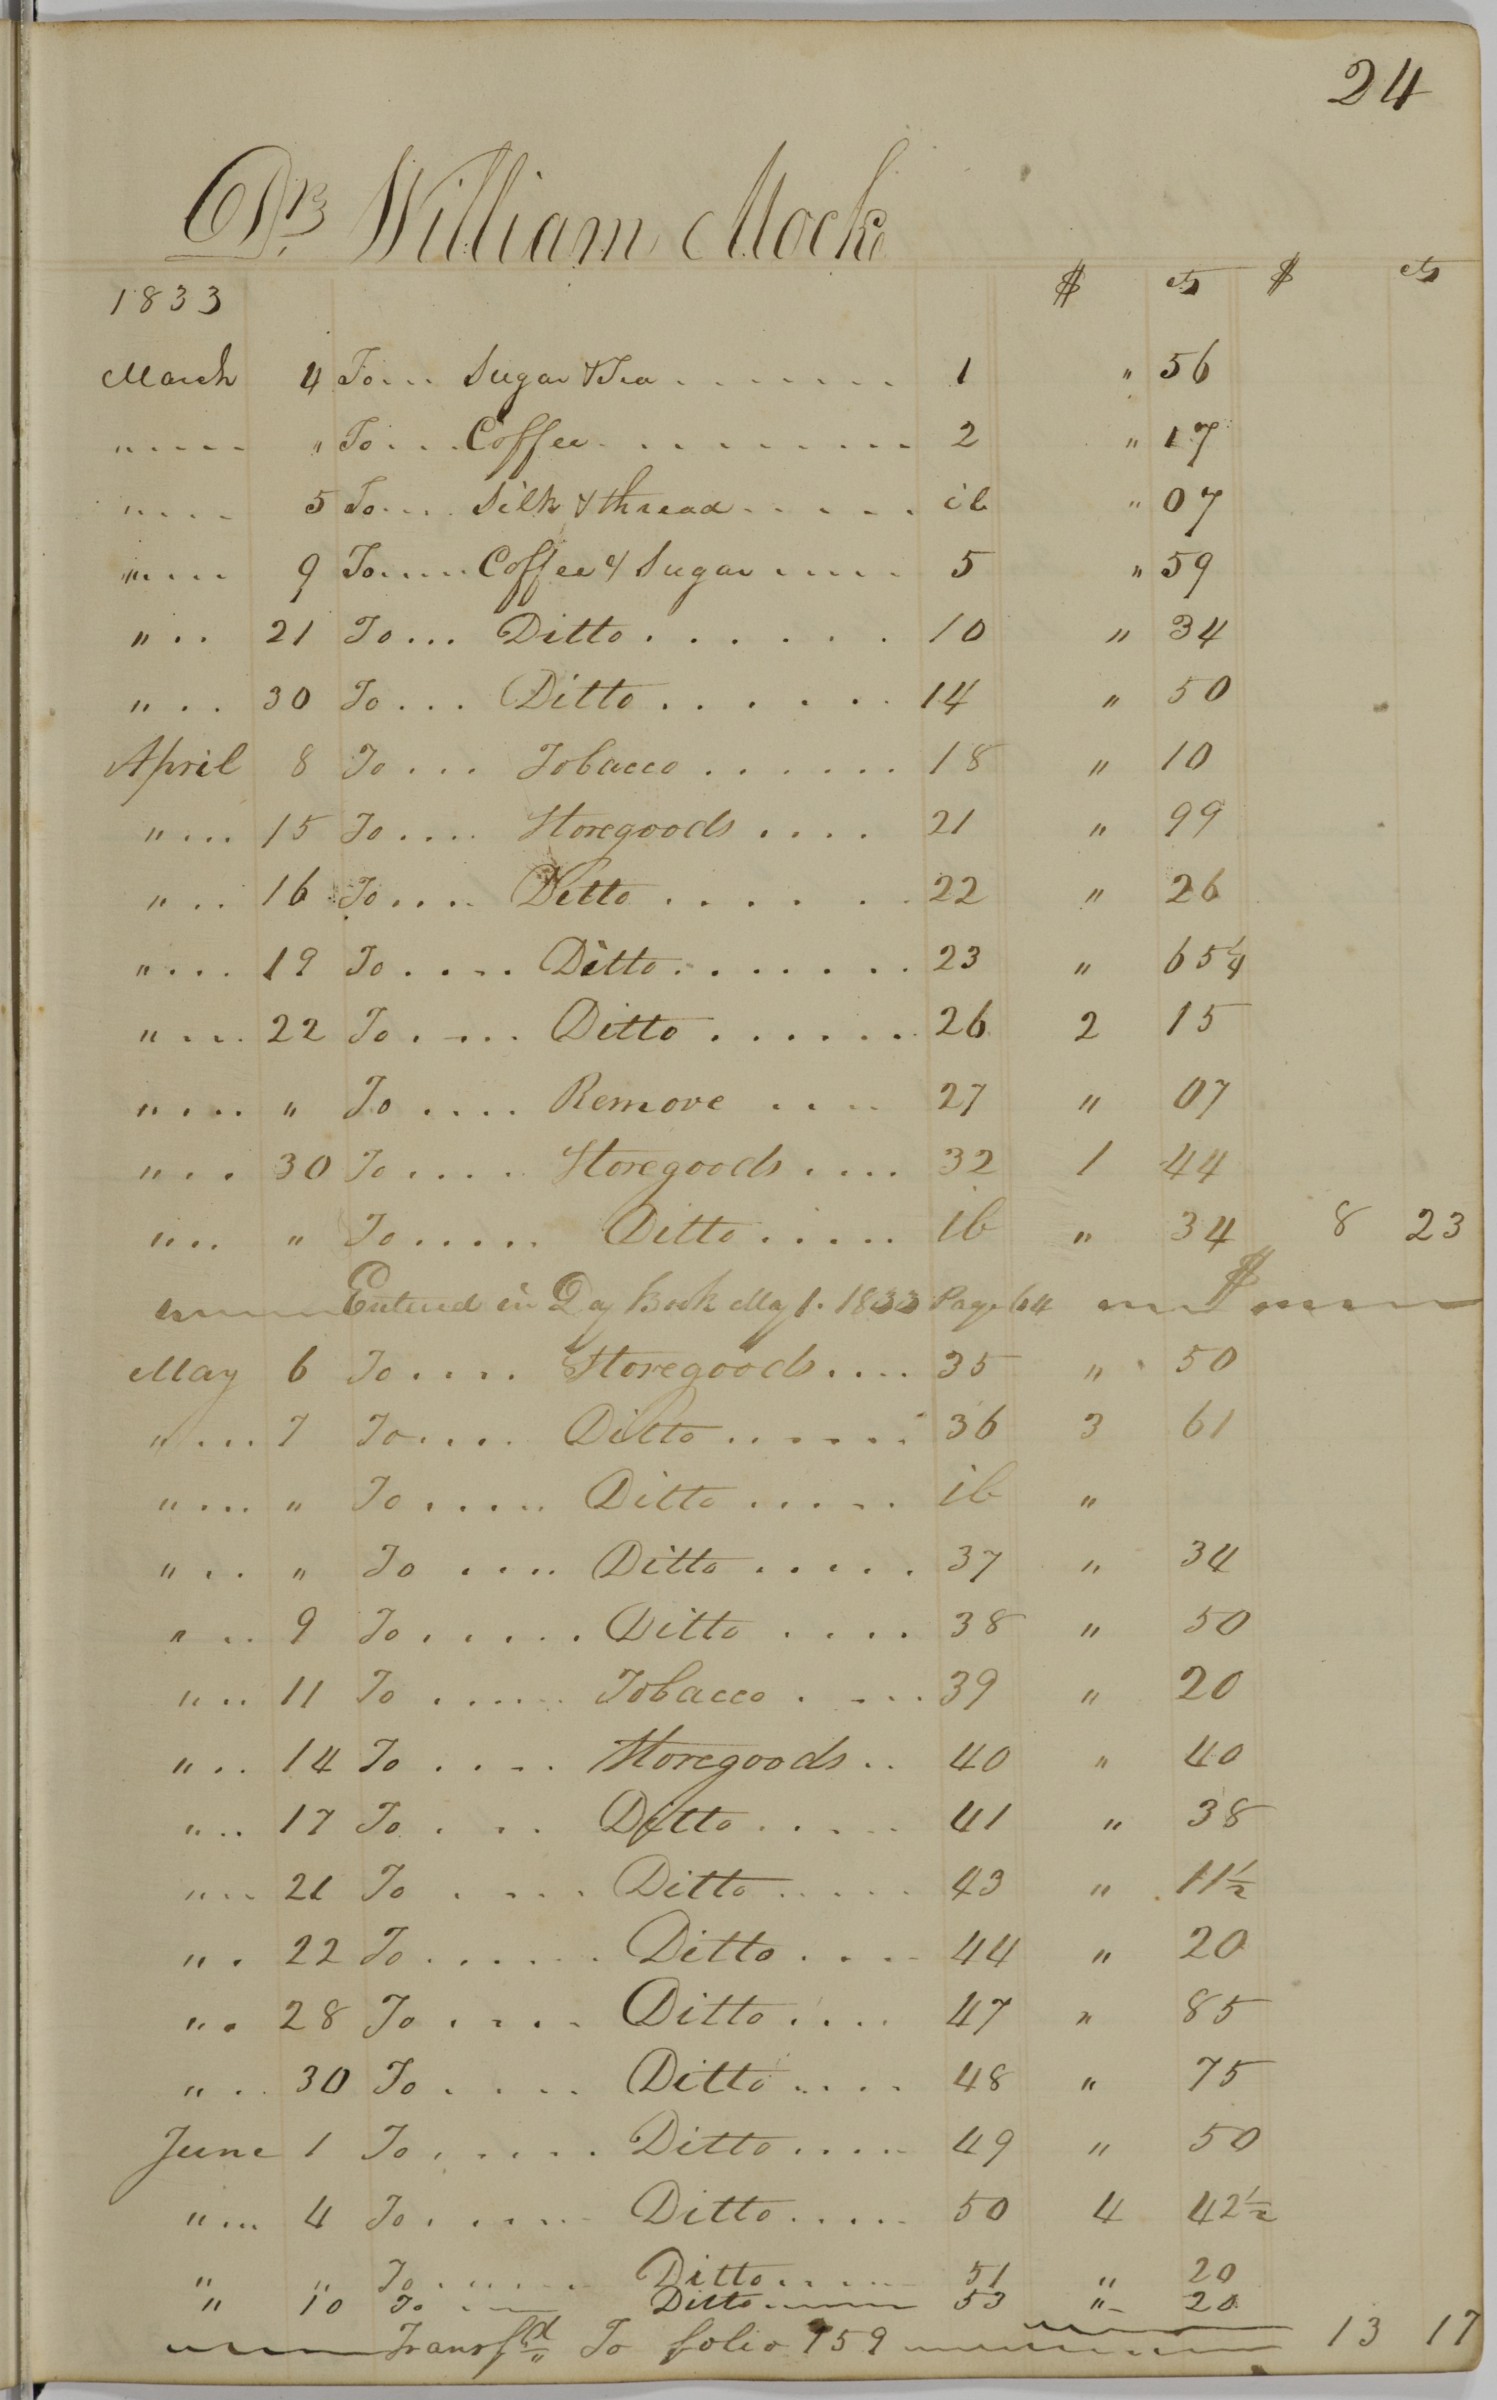 24
Dr. William Mock
$ cts $ cts
1833
March 4 To... Sugar & Tea ........ 1 " 56
" .... " To.... Coffee ......... 2 " 17
" .... 5 To.... Silk & thread ...... ib " 07
" .... 9 To..... Coffee & Sugar ..... 5 " 59
" .. 21 To... Ditto ...... 10 " 34
" .. 30 To... Ditto ...... 14 " 50
April 8 To... Tobacco ...... 18 " 10
" ... 15 To.... Storegoods .... 21 " 99
" .. 16 To.... Ditto ...... 22 " 26
" ... 19 To.... Ditto ....... 23 " 65 1/4
" ... 22 To.... Ditto ...... 26 2 15
" ... " To.... Remove .... 27 " 07
" .. 30 To.... Storegoods .... 32 1 44
" .. " To..... Ditto ..... ib " 34 8 23
Entered in Day Book May 1. 1833 Page 64 $
May 6 To.... Storegoods .... 35 " 50
" ... 7 To.... Ditto ...... 36 3 61
" ... " To..... Ditto ..... ib "
" .. " To.... Ditto ..... 37 " 34
" .. 9 To...... Ditto .... 38 " 50
" .. 11 To...... Tobacco .... 39 " 20
" .. 14 To.... Storegoods .. 40 " 40
" .. 17 To.... Ditto ..... 41 " 38
" .. 21 To.... Ditto ..... 43 " 11 1/2
" . 22 To...... Ditto .... 44 " 20
" . 28 To.... Ditto .... 47 " 85
" .. 30 To.... Ditto .... 48 " 75
June 1 To..... Ditto .... 49 " 50
" ... 4 To..... Ditto ..... 50 4 42 1/2
" " To....... Ditto ..... 51 " 20
" 10 To... Ditto ..... 53 " 20
Transfd To folio 159 13 17